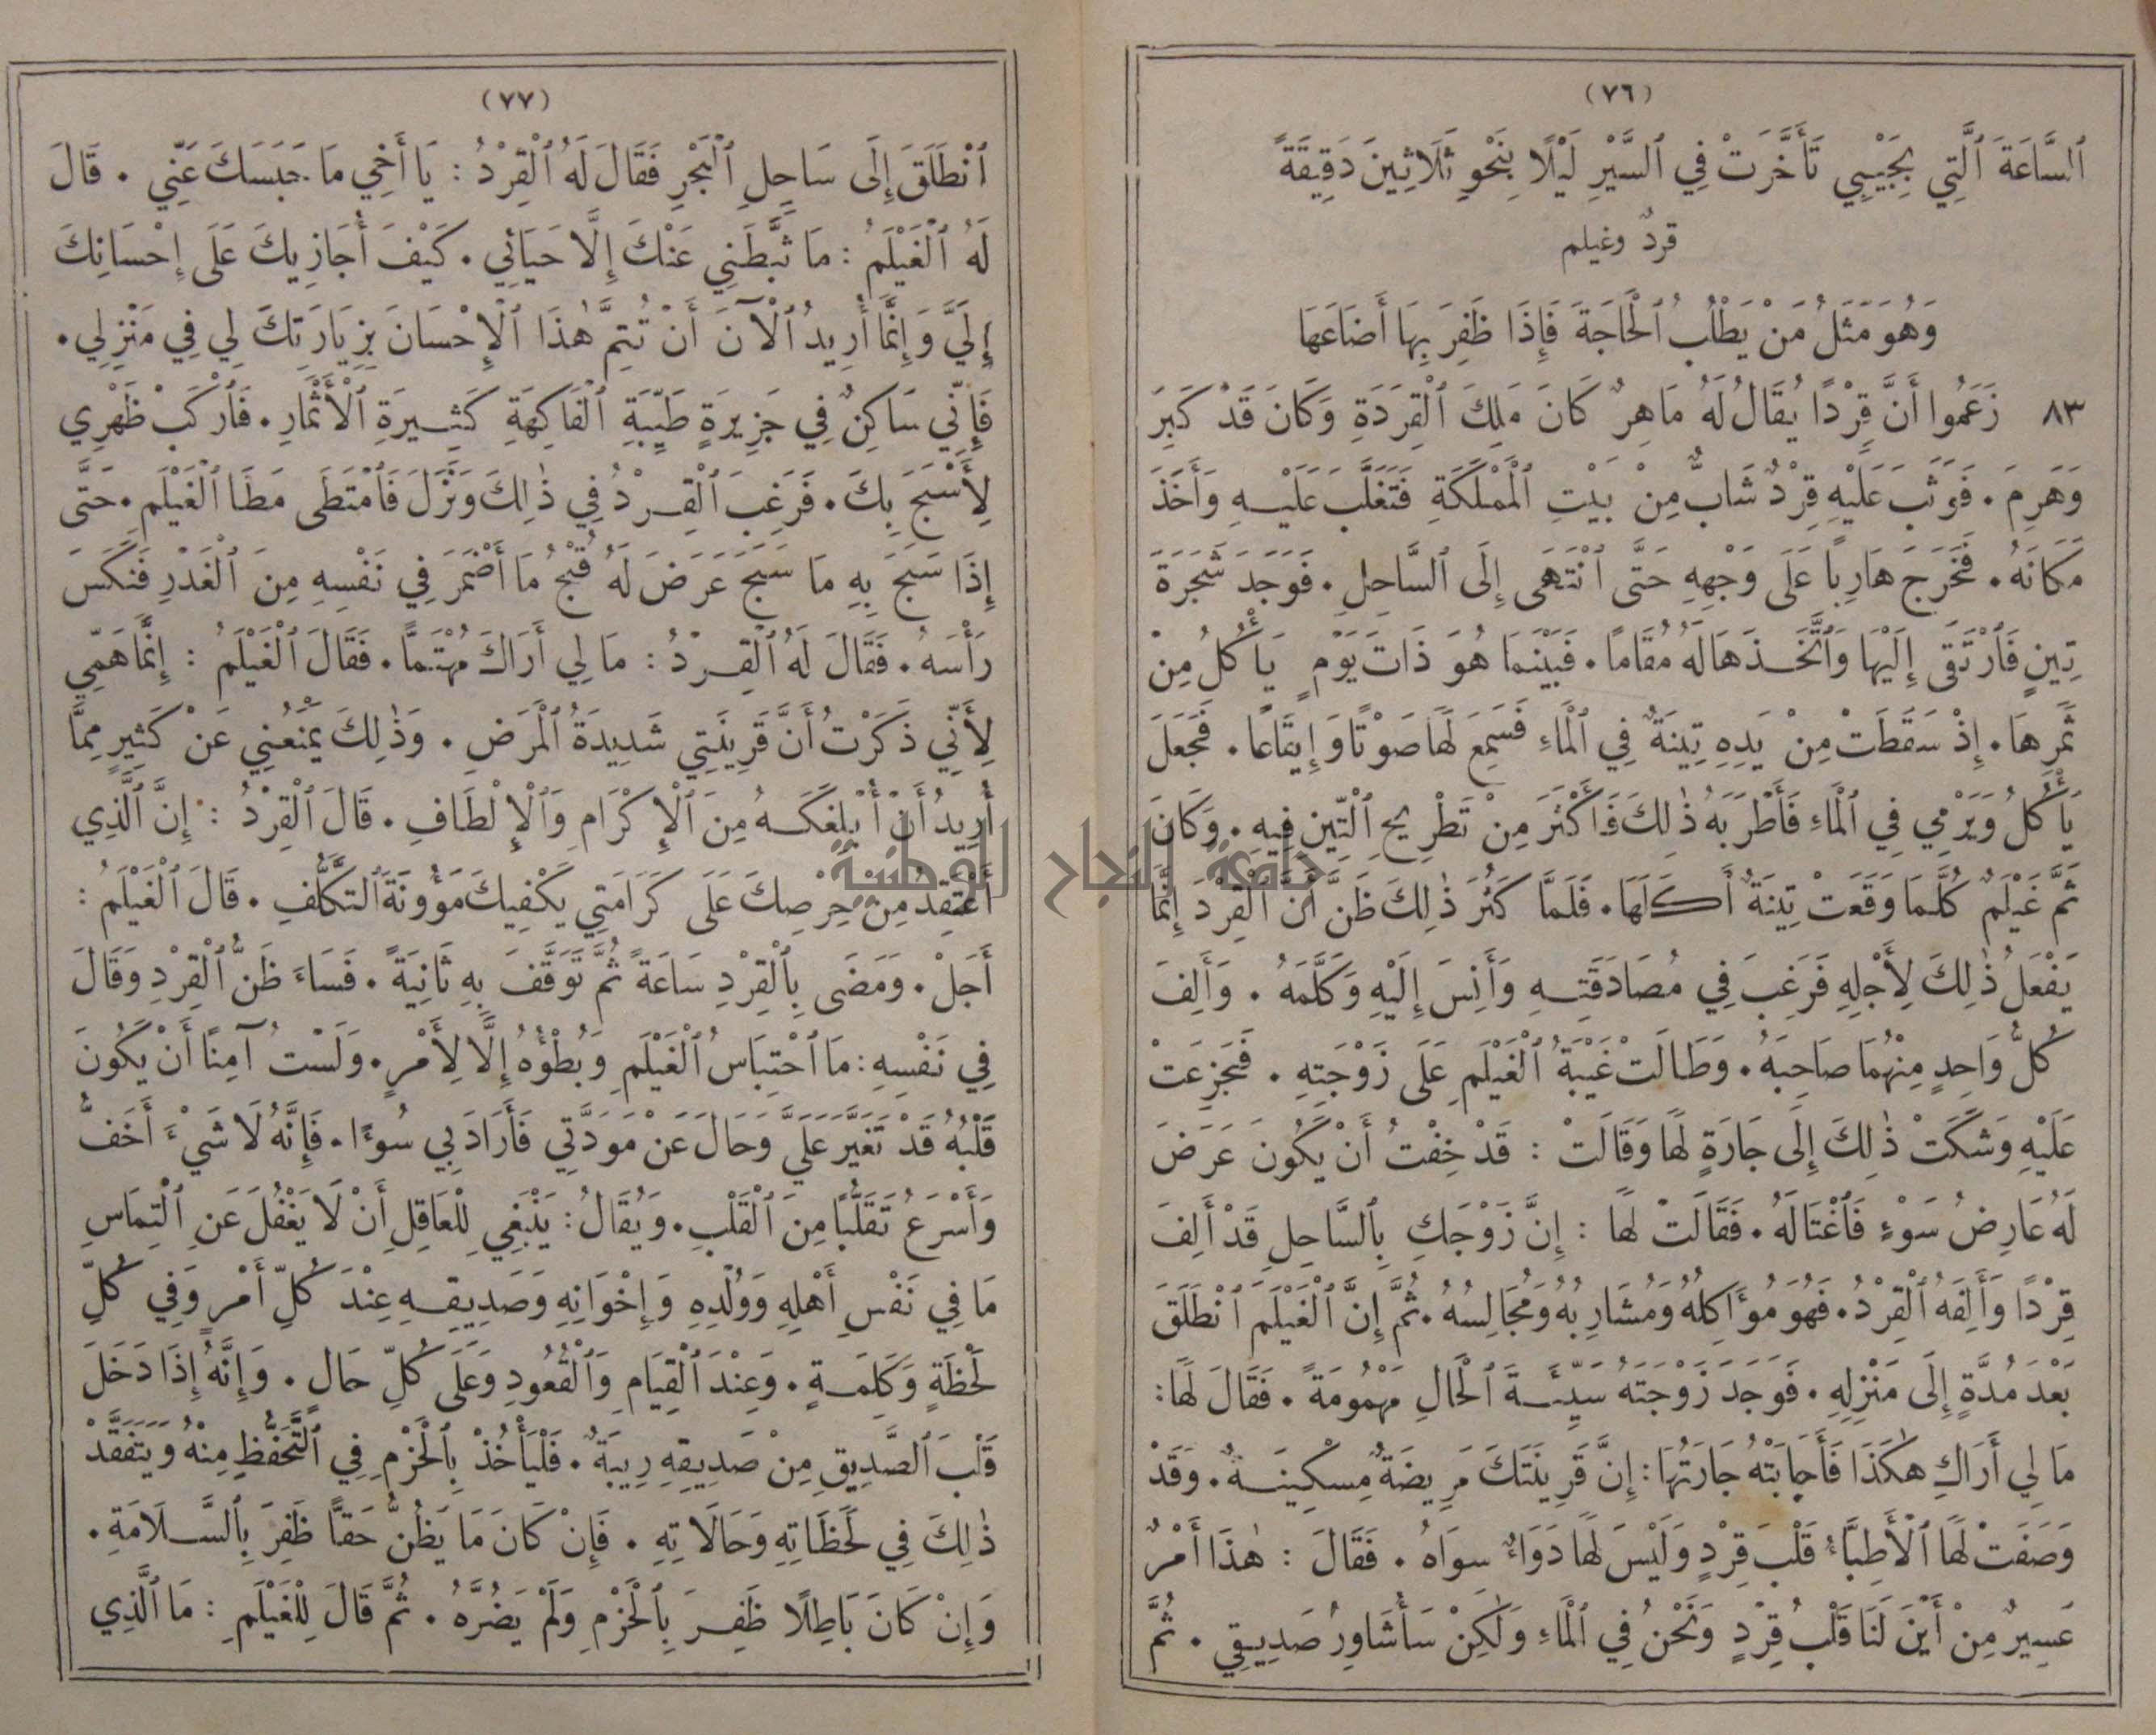 (٧٦)
اَلسَّاعَةَ ٱلَّتِي بِجَيْبِي تَأَخَّرَتْ فِي ٱلسَّيْرِ لَيْلًا بِنَحْوِ ثَلَاثِينَ دَقِيقَةً
قردٌ وغيلم
وَهُوَ مَثَلُ مَنْ يَطْلُبُ ٱلْحَاجَةَ فَإِذَا ظَفِرَ بِهَا أَضَاعَهَا
٨٣ زَعَمُوا أَنَّ قِرْدًا يُقَالُ لَهُ مَاهِرٌ كَانَ مَلِكَ ٱلْقِرَدَةِ وَكَانَ قَدْ كَبِرَ
وَهَرِمَ. فَوَثَبَ عَلَيْهِ قِرْدٌ شَابٌّ مِنْ بَيْتِ ٱلْمَمْلَكَةِ فَتَغَلَّبَ عَلَيْهِ وَأَخَذَ
مَكَانَهُ. فَخَرَجَ هَارِبًا عَلَى وَجْهِهِ حَتَّى ٱنْتَهَى إِلَى ٱلسَّاحِلِ. فَوَجَدَ شَجَرَةَ
تِينٍ فَٱرْتَقَى إِلَيْهَا وَٱتَّخَذَهَا لَهُ مُقَامًا. فَبَيْنَمَا هُوَ ذَاتَ يَوْمٍ يَأْكُلُ مِنْ
ثَمَرِهَا. إِذْ سَقَطَتْ مِنْ يَدِهِ تِينَةٌ فِي ٱلْمَاءِ فَسَمِعَ لَهَا صَوْتًا وَإِيقَاعًا. فَجَعَلَ
يَأْكُلُ وَيَرْمِي فِي ٱلْمَاءِ فَأَطْرَبَهُ ذٰلِكَ فَأَكْثَرَ مِنْ تَطْرِيحِ ٱلتِّينِ فِيهِ. وَكَانَ
ثَمَّ غَيْلَمٌ كُلَّمَا وَقَعَتْ تِينَةٌ أَكَلَهَا. فَلَمَّا كَثُرَ ذٰلِكَ ظَنَّ أَنَّ ٱلْقِرْدَ إِنَّمَا
يَفْعَلُ ذٰلِكَ لِأَجْلِهِ فَرَغِبَ فِي مُصَادَقَتِهِ وَأَنِسَ إِلَيْهِ وَكَلَّمَهُ. وَأَلِفَ
كُلُّ وَاحِدٍ مِنْهُمَا صَاحِبَهُ. وَطَالَتْ غَيْبَةُ ٱلْغَيْلَمِ عَلَى زَوْجَتِهِ. فَجَزِعَتْ
عَلَيْهِ وَشَكَتْ ذٰلِكَ إِلَى جَارَةٍ لَهَا وَقَالَتْ : قَدْ خِفْتُ أَنْ يَكُونَ عَرَضَ
لَهُ عَارِضُ سَوْءٍ فَٱغْتَالَهُ. فَقَالَتْ لَهَا : إِنَّ زَوْجَكِ بِٱلسَّاحِلِ قَدْ أَلِفَ
قِرْدًا وَأَلِفَهُ ٱلْقِرْدُ. فَهُوَ مُؤَاكِلُهُ وَمُشَارِبُهُ وَمُجَالِسُهُ. ثُمَّ إِنَّ ٱلْغَيْلَمَ ٱنْطَلَقَ
بَعْدَ مُدَّةٍ إِلَى مَنْزِلِهِ. فَوَجَدَ زَوْجَتَهُ سَيِّئَةَ ٱلْحَالِ مَهْمُومَةً. فَقَالَ لَهَا:
مَا لِي أَرَاكِ هٰكَذَا فَأَجَابَتْهُ جَارَتُهَا: إِنَّ قَرِينَتَكَ مَرِيضَةٌ مِسْكِينَةٌ. وَقَدْ
وَصَفَتْ لَهَا ٱلْأَطِبَّاءُ قَلْبَ قِرْدٍ وَلَيْسَ لَهَا دَوَاءٌ سِوَاهُ. فَقَالَ : هٰذَا أَمْرٌ
عَسِيرٌ مِنْ أَيْنَ لَنَا قَلْبُ قِرْدٍ وَنَحْنُ فِي ٱلْمَاءِ وَلٰكِنْ سَأُشَاوِرُ صَدِيقِي. ثُمَّ
(٧٧)
ٱنْطَلَقَ إِلَى سَاحِلِ ٱلْبَحْرِ فَقَالَ لَهُ ٱلْقِرْدُ : يَا أَخِي مَا حَبَسَكَ عَنِّي. قَالَ
لَهُ ٱلْغَيْلَمُ : مَا ثَبَّطَنِي عَنْكَ إِلَّا حَيَائِي. كَيْفَ أُجَازِيكَ عَلَى إِحْسَانِكَ
إِلَيَّ وَإِنَّمَا أُرِيدُ ٱلْآنَ أَنْ تُتِمَّ هٰذَا ٱلْإِحْسَانَ بِزِيَارَتِكَ لِي فِي مَنْزِلِي.
فَإِنِّي سَاكِنٌ فِي جَزِيرَةٍ طَيِّبَةِ ٱلْفَاكِهَةِ كَثِيرَةِ ٱلْأَثْمَارِ. فَٱرْكَبْ ظَهْرِي
لِأَسْبَحَ بِكَ. فَرَغِبَ ٱلْقِرْدُ فِي ذٰلِكَ وَنَزَلَ فَٱمْتَطَى مَطَا ٱلْغَيْلَمِ. حَتَّى
إِذَا سَبَحَ بِهِ مَا سَبَحَ عَرَضَ لَهُ قُبْحُ مَا أَضْمَرَ فِي نَفْسِهِ مِنَ ٱلْغَدْرِ فَنَكَسَ
رَأْسَهُ. فَقَالَ لَهُ ٱلْقِرْدُ : مَا لِي أَرَاكَ مُهْتَمًّا. فَقَالَ ٱلْغَيْلَمُ : إِنَّمَا هَمِّي
لِأَنِّي ذَكَرْتُ أَنَّ قَرِينَتِي شَدِيدَةُ ٱلْمَرَضِ. وَذٰلِكَ يَمْنَعُنِي عَنْ كَثِيرٍ مِمَّا
أُرِيدُ أَنْ أُبْلِغَكَهُ مِنَ ٱلْإِكْرَامِ وَٱلْإِلْطَافِ. قَالَ ٱلْقِرْدُ : إِنَّ ٱلَّذِي
أَعْتَقِدُ مِنْ حِرْصِكَ عَلَى كَرَامَتِي يَكْفِيكَ مَؤُونَةَ ٱلتَّكَلُّفِ. قَالَ ٱلْغَيْلَمُ :
أَجَلْ. وَمَضَى بِٱلْقِرْدِ سَاعَةً ثُمَّ تَوَقَّفَ بِهِ ثَانِيَةً. فَسَاءَ ظَنُّ ٱلْقِرْدِ وَقَالَ
فِي نَفْسِهِ: مَا ٱحْتِبَاسُ ٱلْغَيْلَمِ وَبُطْؤُهُ إِلَّا لِأَمْرٍ. وَلَسْتُ آمِنًا أَنْ يَكُونَ
قَلْبُهُ قَدْ تَغَيَّرَ عَلَيَّ وَحَالَ عَنْ مَوَدَّتِي فَأَرَادَ بِي سُوءًا. فَإِنَّهُ لَا شَيْءَ أَخَفُّ
وَأَسْرَعُ تَقَلُّبًا مِنَ ٱلْقَلْبِ. وَيُقَالُ: يَنْبَغِي لِلْعَاقِلِ أَنْ لَا يَغْفُلَ عَنِ ٱلْتِمَاسِ
مَا فِي نَفْسِ أَهْلِهِ وَوُلْدِهِ وَإِخْوَانِهِ وَصَدِيقِهِ عِنْدَ كُلِّ أَمْرٍ وَفِي كُلِّ
لَحْظَةٍ وَكَلِمَةٍ. وَعِنْدَ ٱلْقِيَامِ وَٱلْقُعُودِ وَعَلَى كُلِّ حَالٍ. وَإِنَّهُ إِذَا دَخَلَ
قَلْبَ ٱلصَّدِيقِ مِنْ صَدِيقِهِ رِيبَةٌ. فَلْيَأْخُذْ بِٱلْحَزْمِ فِي ٱلتَّحَفُّظِ مِنْهُ وَيَتَفَقَّدْ
ذٰلِكَ فِي لَحَظَاتِهِ وَحَالَاتِهِ. فَإِنْ كَانَ مَا يَظُنُّ حَقًّا ظَفِرَ بِٱلسَّلَامَةِ.
وَإِنْ كَانَ بَاطِلًا ظَفِرَ بِٱلْحَزْمِ وَلَمْ يَضُرَّهُ. ثُمَّ قَالَ لِلْغَيْلَمِ : مَا ٱلَّذِي
جامعة النجاح الوطنية